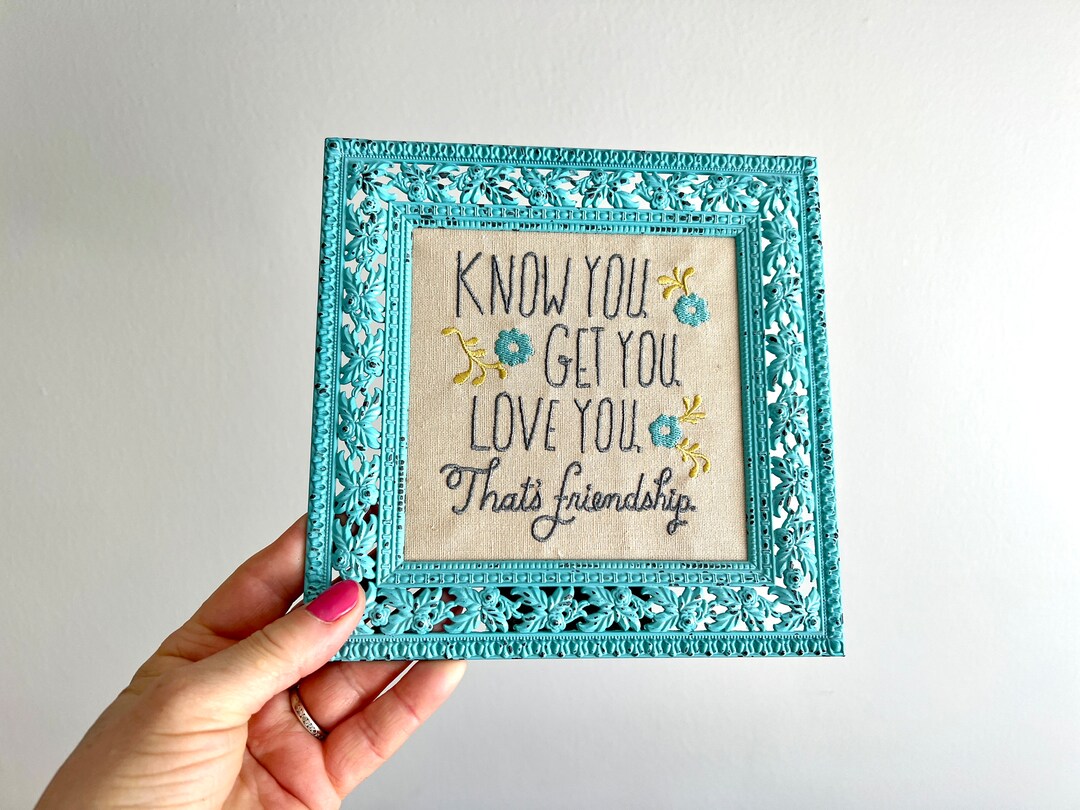 KNOW YOU.
GET YOU.
LOVE YOU.
That's friendship.